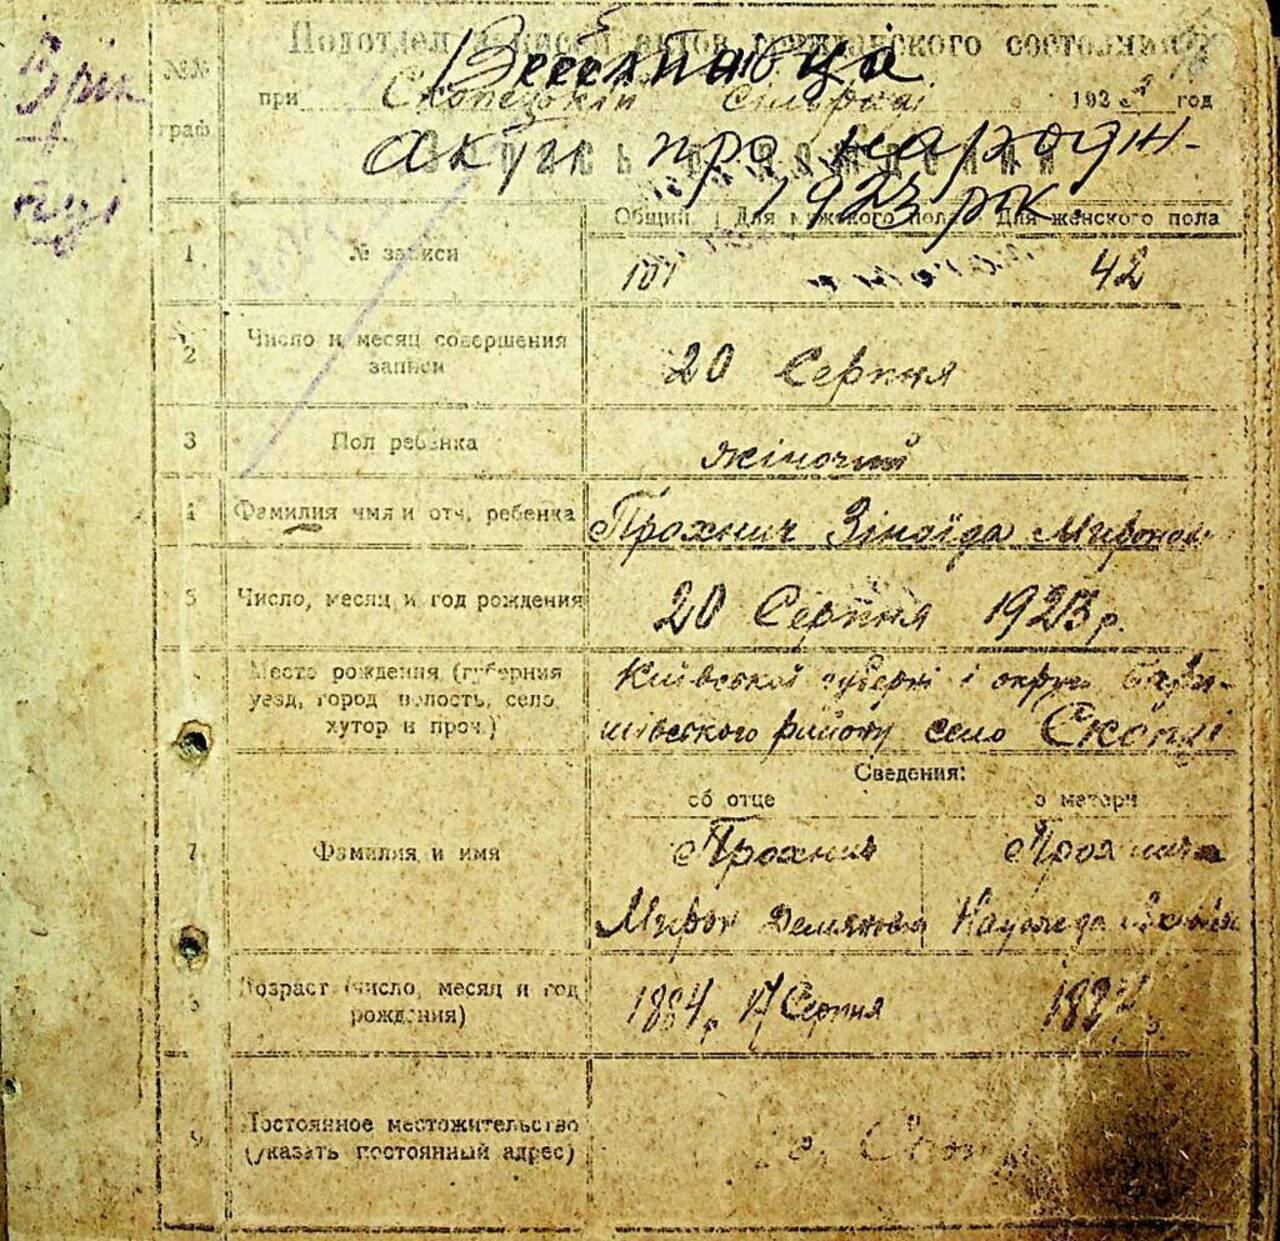 Подотдел записей актов гражданского состояния
при Скопецькій Сільраді 1923 год
акти про народж-
Запись о рождении
1923 рік
№№ граф
Общий Для мужского пола Для женского пола
1 № записи 101 42
2 Число и месяц совершения записи 20 Серпня
3 Пол ребенка жіночий
4 Фамилия имя и отч. ребенка Прохнич Зінаїда Миронов.
5 Число, месяц и год рождения 20 Серпня 1923 р.
Место рождения (губерния
уезд, город волость, село
хутор и проч.)
Київської губерні і округи Бари-
шівського району село Скопці
Сведения:
об отце о матери
7 Фамилия и имя
Прохнич
Мирон Демянович
Возраст (число, месяц и год
рождения)
1884 р. 17 Серпня
9 Постоянное местожительство
(указать постоянный адрес)